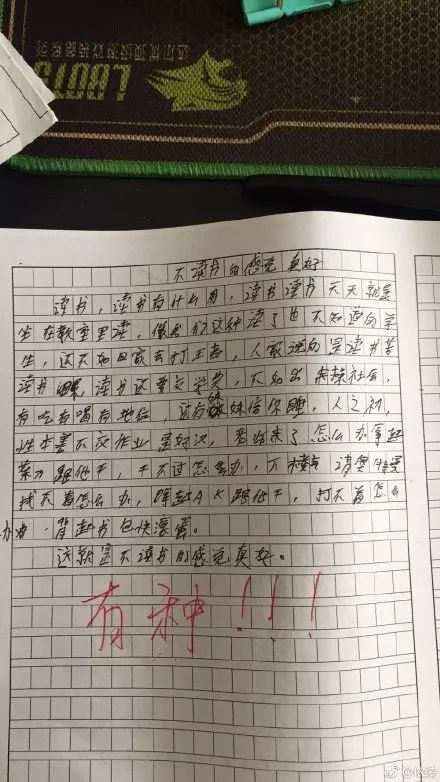 不读书的感觉真好
读书，读书有什么用，读书读书天天就是
坐在教室里读，像我们这种读了也不知道的学
生，还不如回家去打王者，人家说的是读书苦
读书累，读书还要交学费，不如出来混社会，
有吃有喝有地位，还有妹妹陪你睡，人之初，
性本善不交作业是好汉，老师来了怎么办拿起
菜刀跟他干，干不过怎么办，下楼去请
找不着怎么办，蹲起AK跟他干，打不着怎么
办，背起书包快滚蛋。
这就是不读书的感觉真好。
有种！！！